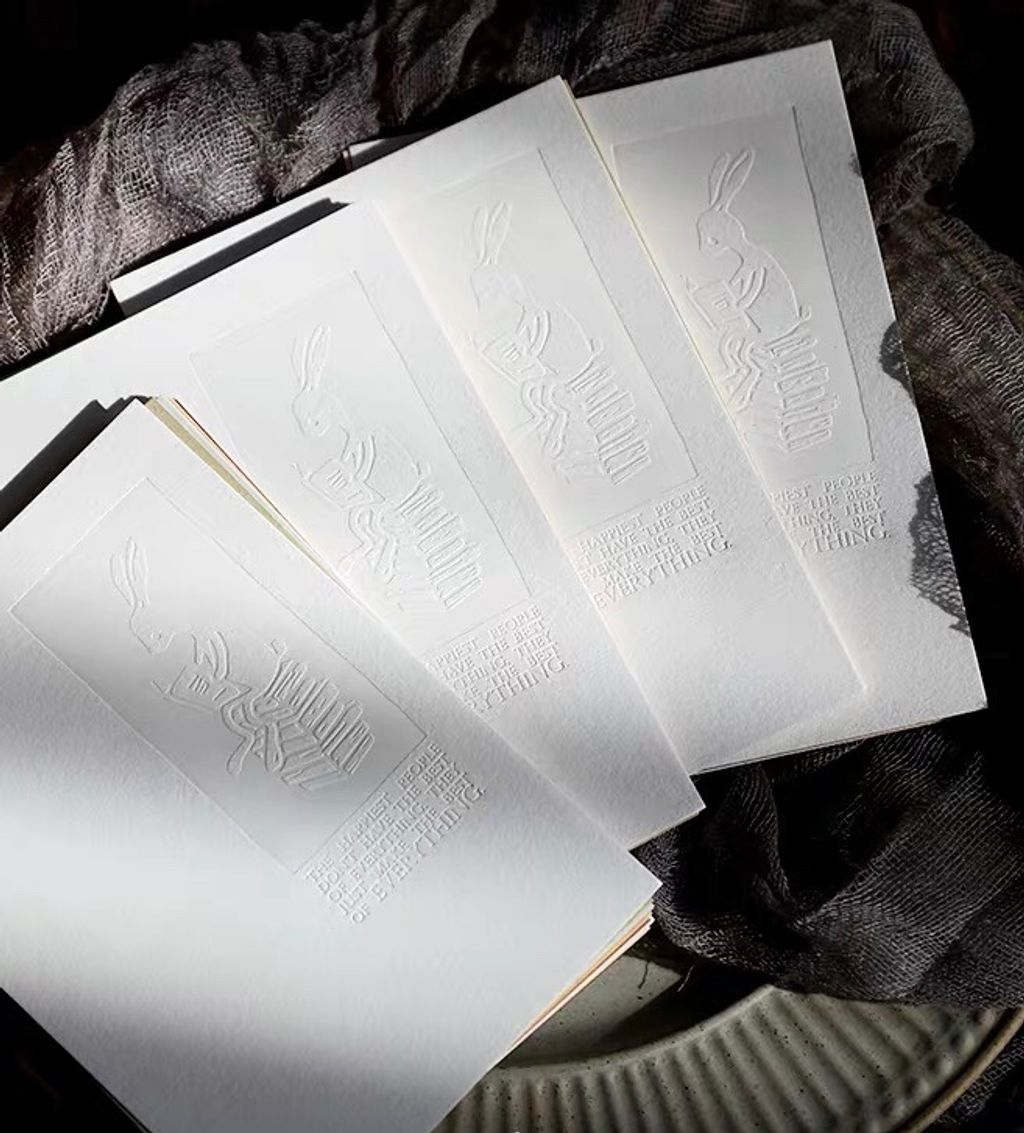 THE HAPPIEST PEOPLE
DON'T HAVE THE BEST
OF EVERYTHING THEY
JUST MAKE THE BEST
OF EVERYTHING.
APPIEST PEOPLE
AVE THE BEST
YTHING THEY
THE BEST
RYTHING.
HAPPIEST PEOPLE
HAVE THE BEST
EVERYTHING THEY
MAKE THE BEST
EVERYTHING.
PIEST PEOPLE
VE THE BEST
HING THEY
THE BEST
YTHING.